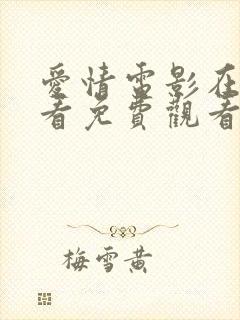 愛情雷影在
看免費觀看
梅雪黄